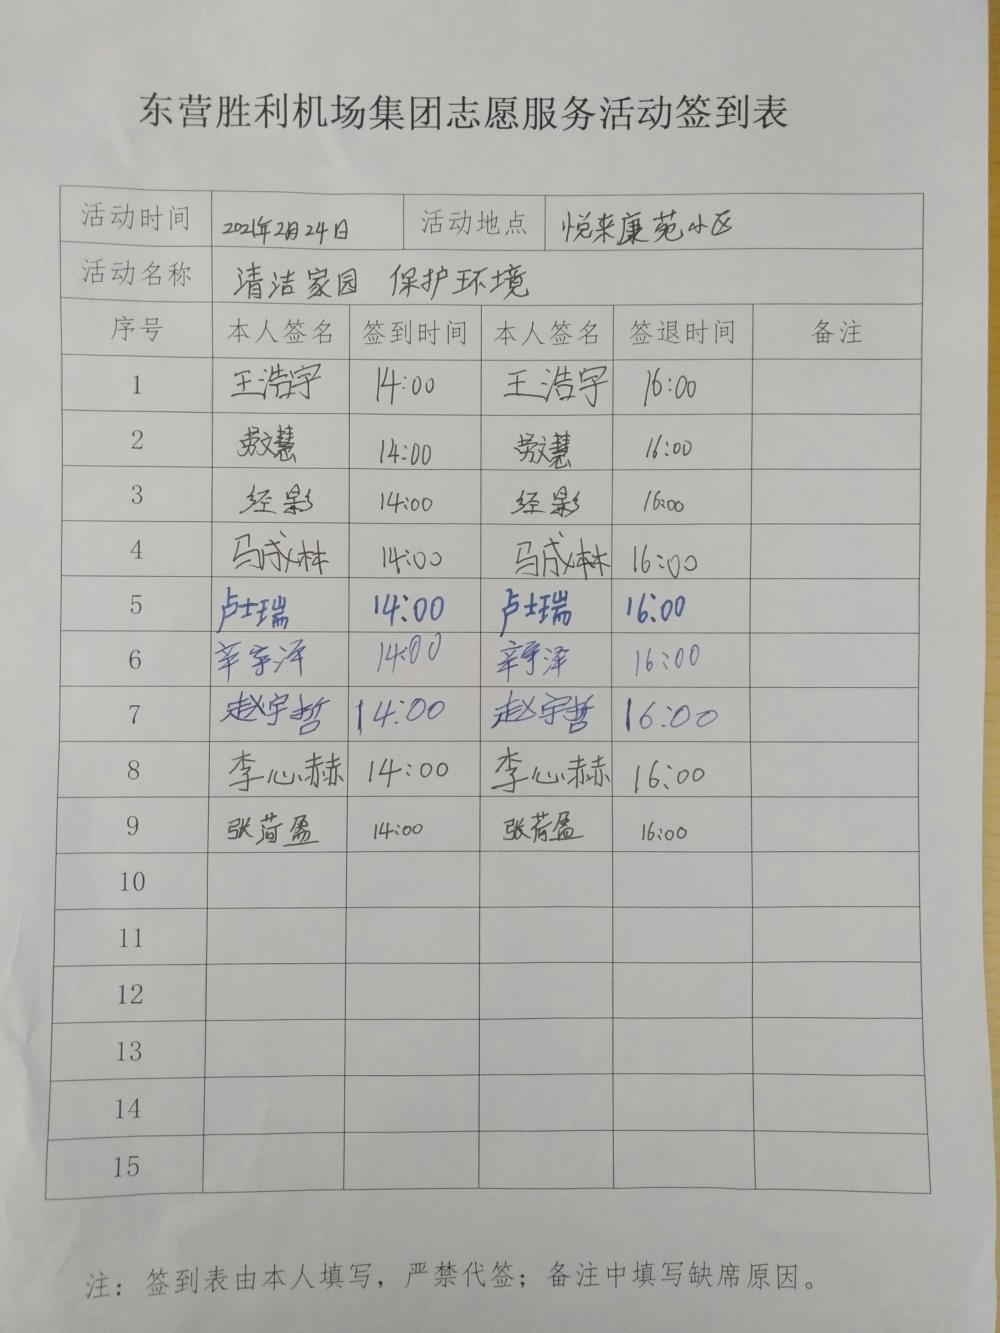 东营胜利机场集团志愿服务活动签到表
活动时间 2021年2月24日 活动地点 悦来康苑小区
活动名称 清洁家园 保护环境
序号 本人签名 签到时间 本人签名 签退时间 备注
1 王浩宇 14:00 王浩宇 16:00
2 劳文慧 14:00 劳文慧 16:00
3 经影 14:00 经影 16:00
4 马成林 14:00 马成林 16:00
5 卢士瑞 14:00 卢士瑞 16:00
6 辛宇泽 14:00 辛宇泽 16:00
7 赵宇哲 14:00 赵宇哲 16:00
8 李心赫 14:00 李心赫 16:00
9 张荷盈 14:00 张荷盈 16:00
10
11
12
13
14
15
注：签到表由本人填写，严禁代签；备注中填写缺席原因。